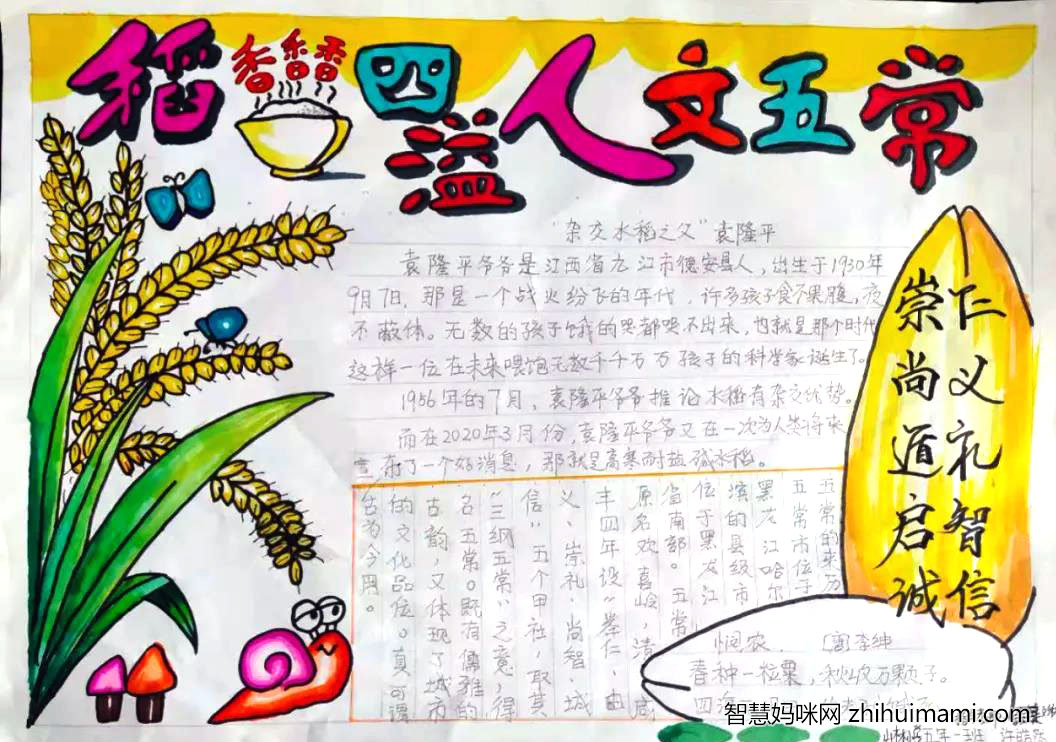 稻香香香四溢人文五常
"杂交水稻之父"袁隆平
袁隆平爷爷是江西省九江市德安县人，出生于1930年
9月7日，那是一个战火纷飞的年代，许多孩子食不果腹，衣
不蔽体。无数的孩子饿的哭都哭不出来，也就是那个时代
这样一位在未来喂饱无数千千万万孩子的科学家诞生了。
1956年的7月，袁隆平爷爷推论水稻有杂交优势。
而在2020年3月份，袁隆平爷爷又在一次为人类将来
了一个好消息，那就是高寒耐盐碱水稻。
五常的来历
五常市位于
黑龙江哈尔
滨的县级市
位于黑龙江
省南部。五常
原名欢喜岭，清咸
丰四年设"举仁、由
义、崇礼、尚智、诚
信"五个甲社，取其
"三纲五常"之意，得
名五常。既有儒雅的
古韵，又体现了城市
的文化品位。真可谓
古为今用。
仁义礼智信
崇尚道启诚
悯农 [唐]李绅
春种一粒粟，秋收万颗子。
四海
智慧妈咪网 zhihuimami.com
五年一班